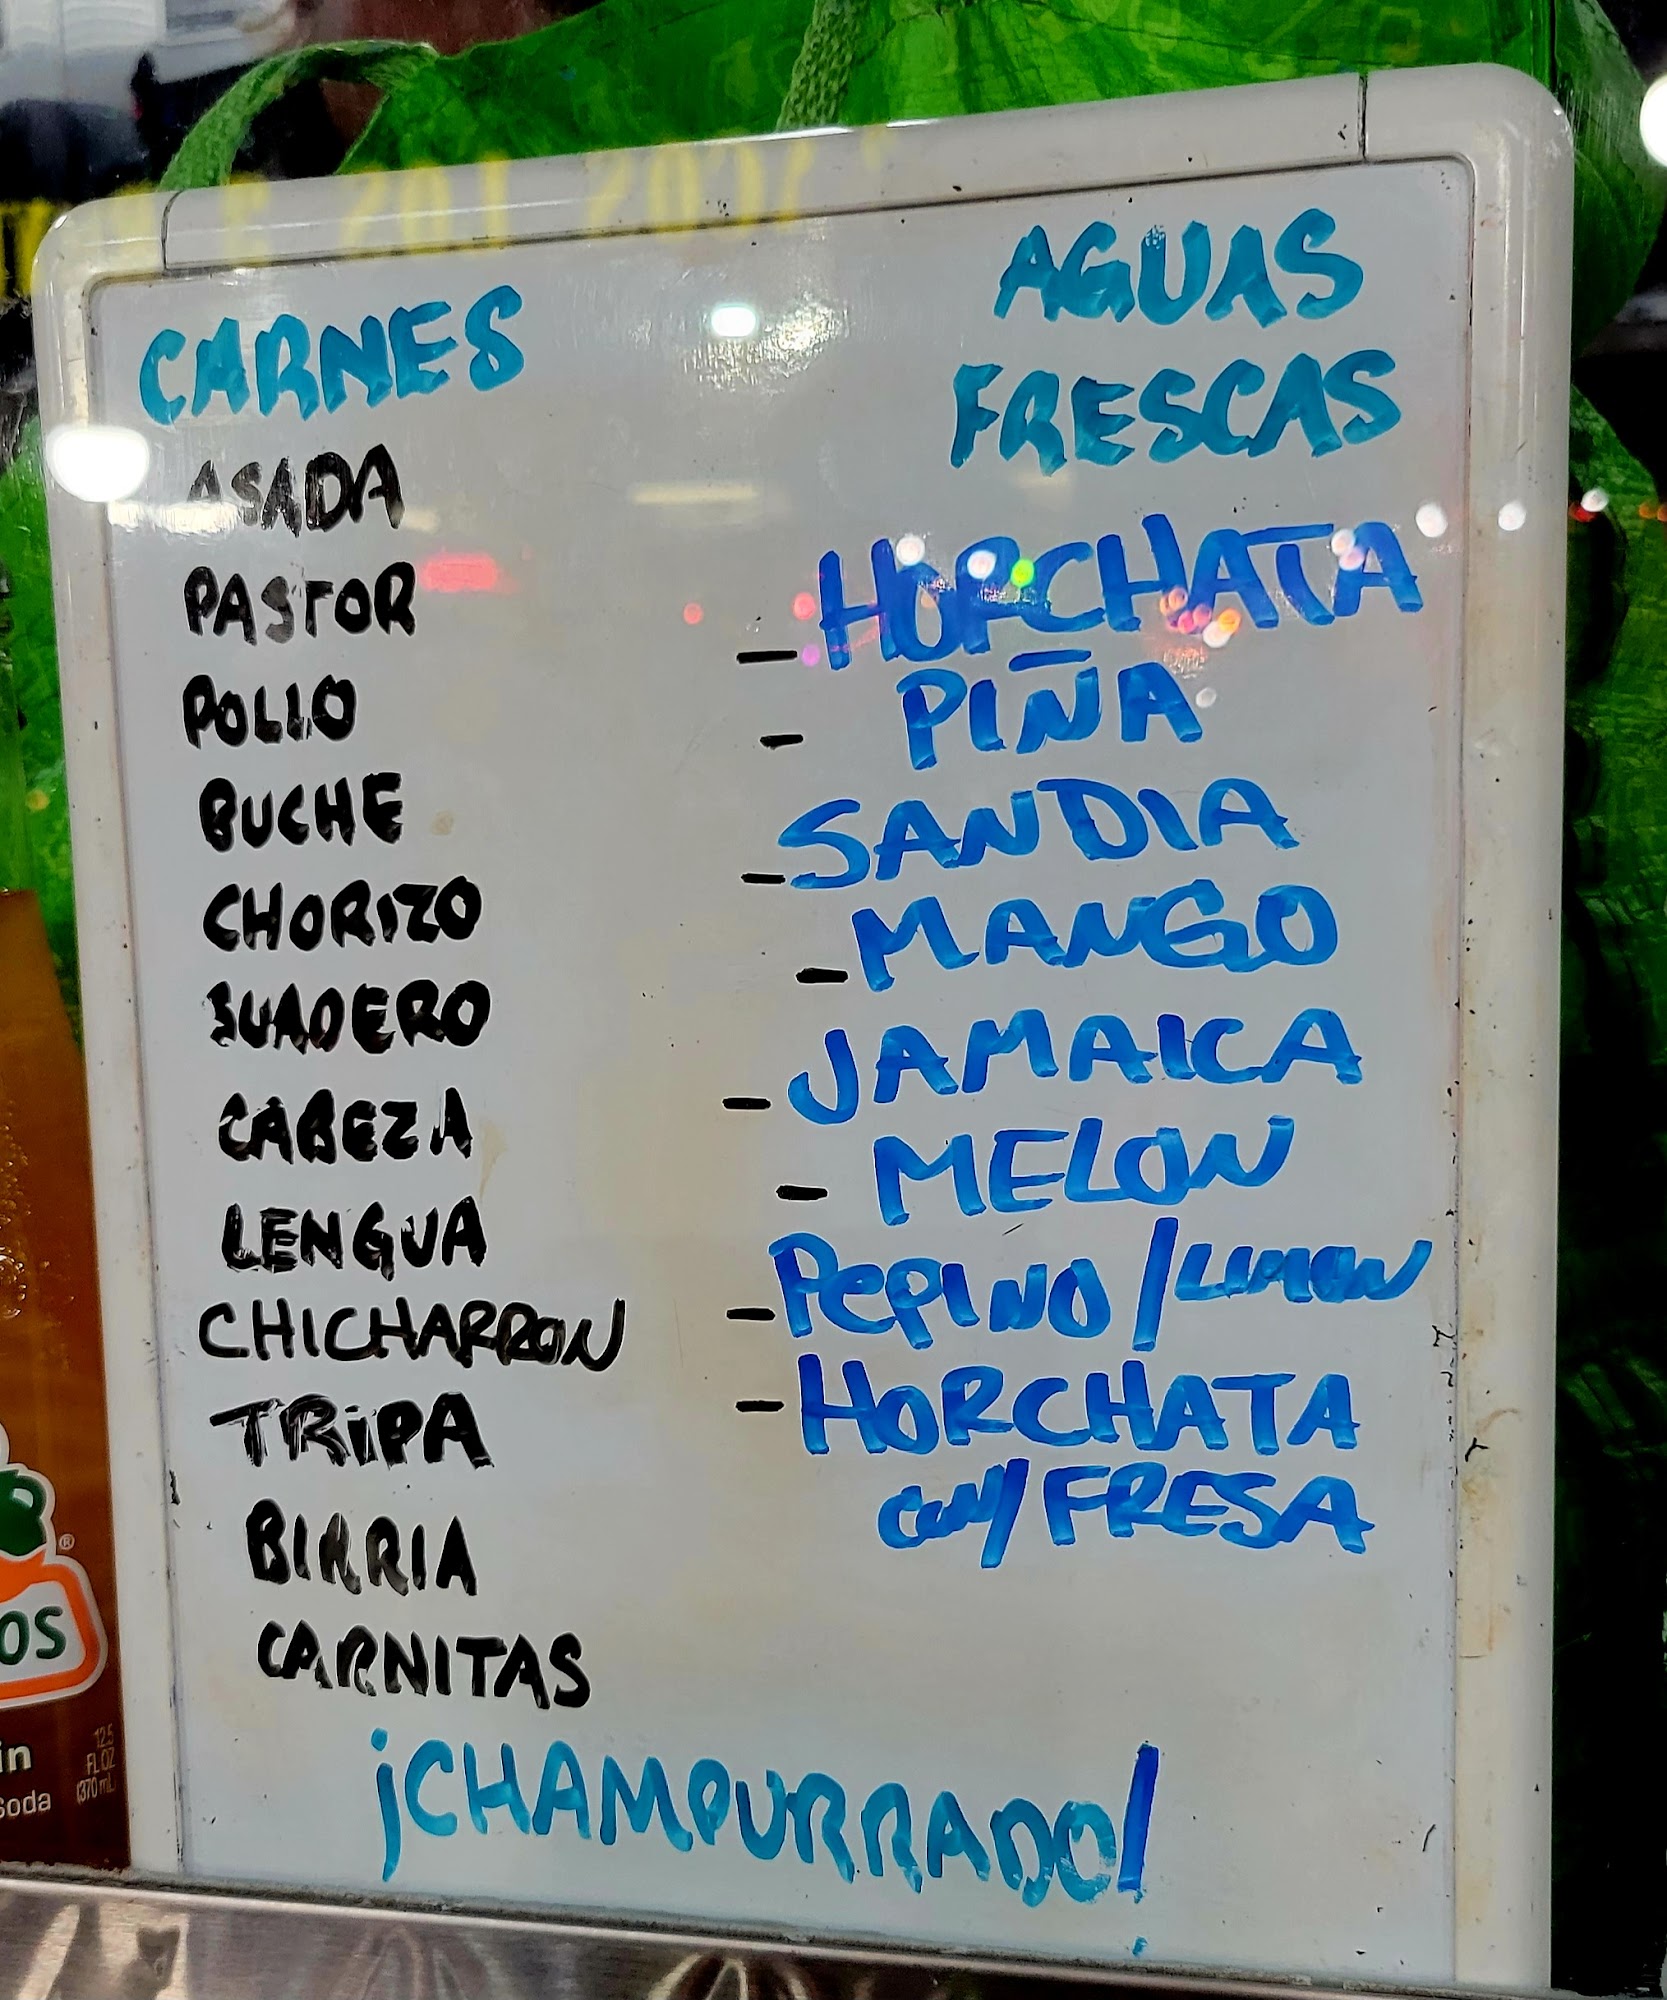 CARNES
ASADA
PASTOR
POLLO
BUCHE
CHORIZO
SUADERO
CABEZA
LENGUA
CHICHARRON
TRiPA
BIRRIA
CARNITAS
AGUAS
FRESCAS
- HORCHATA
- PIÑA
- SANDIA
- MANGO
- JAMAICA
- MELON
- PePINO/LIMON
- HORCHATA
CON/FRESA
¡CHAMPURRADO!
OS
®
in
Soda
12.5
FL OZ
(370 mL)